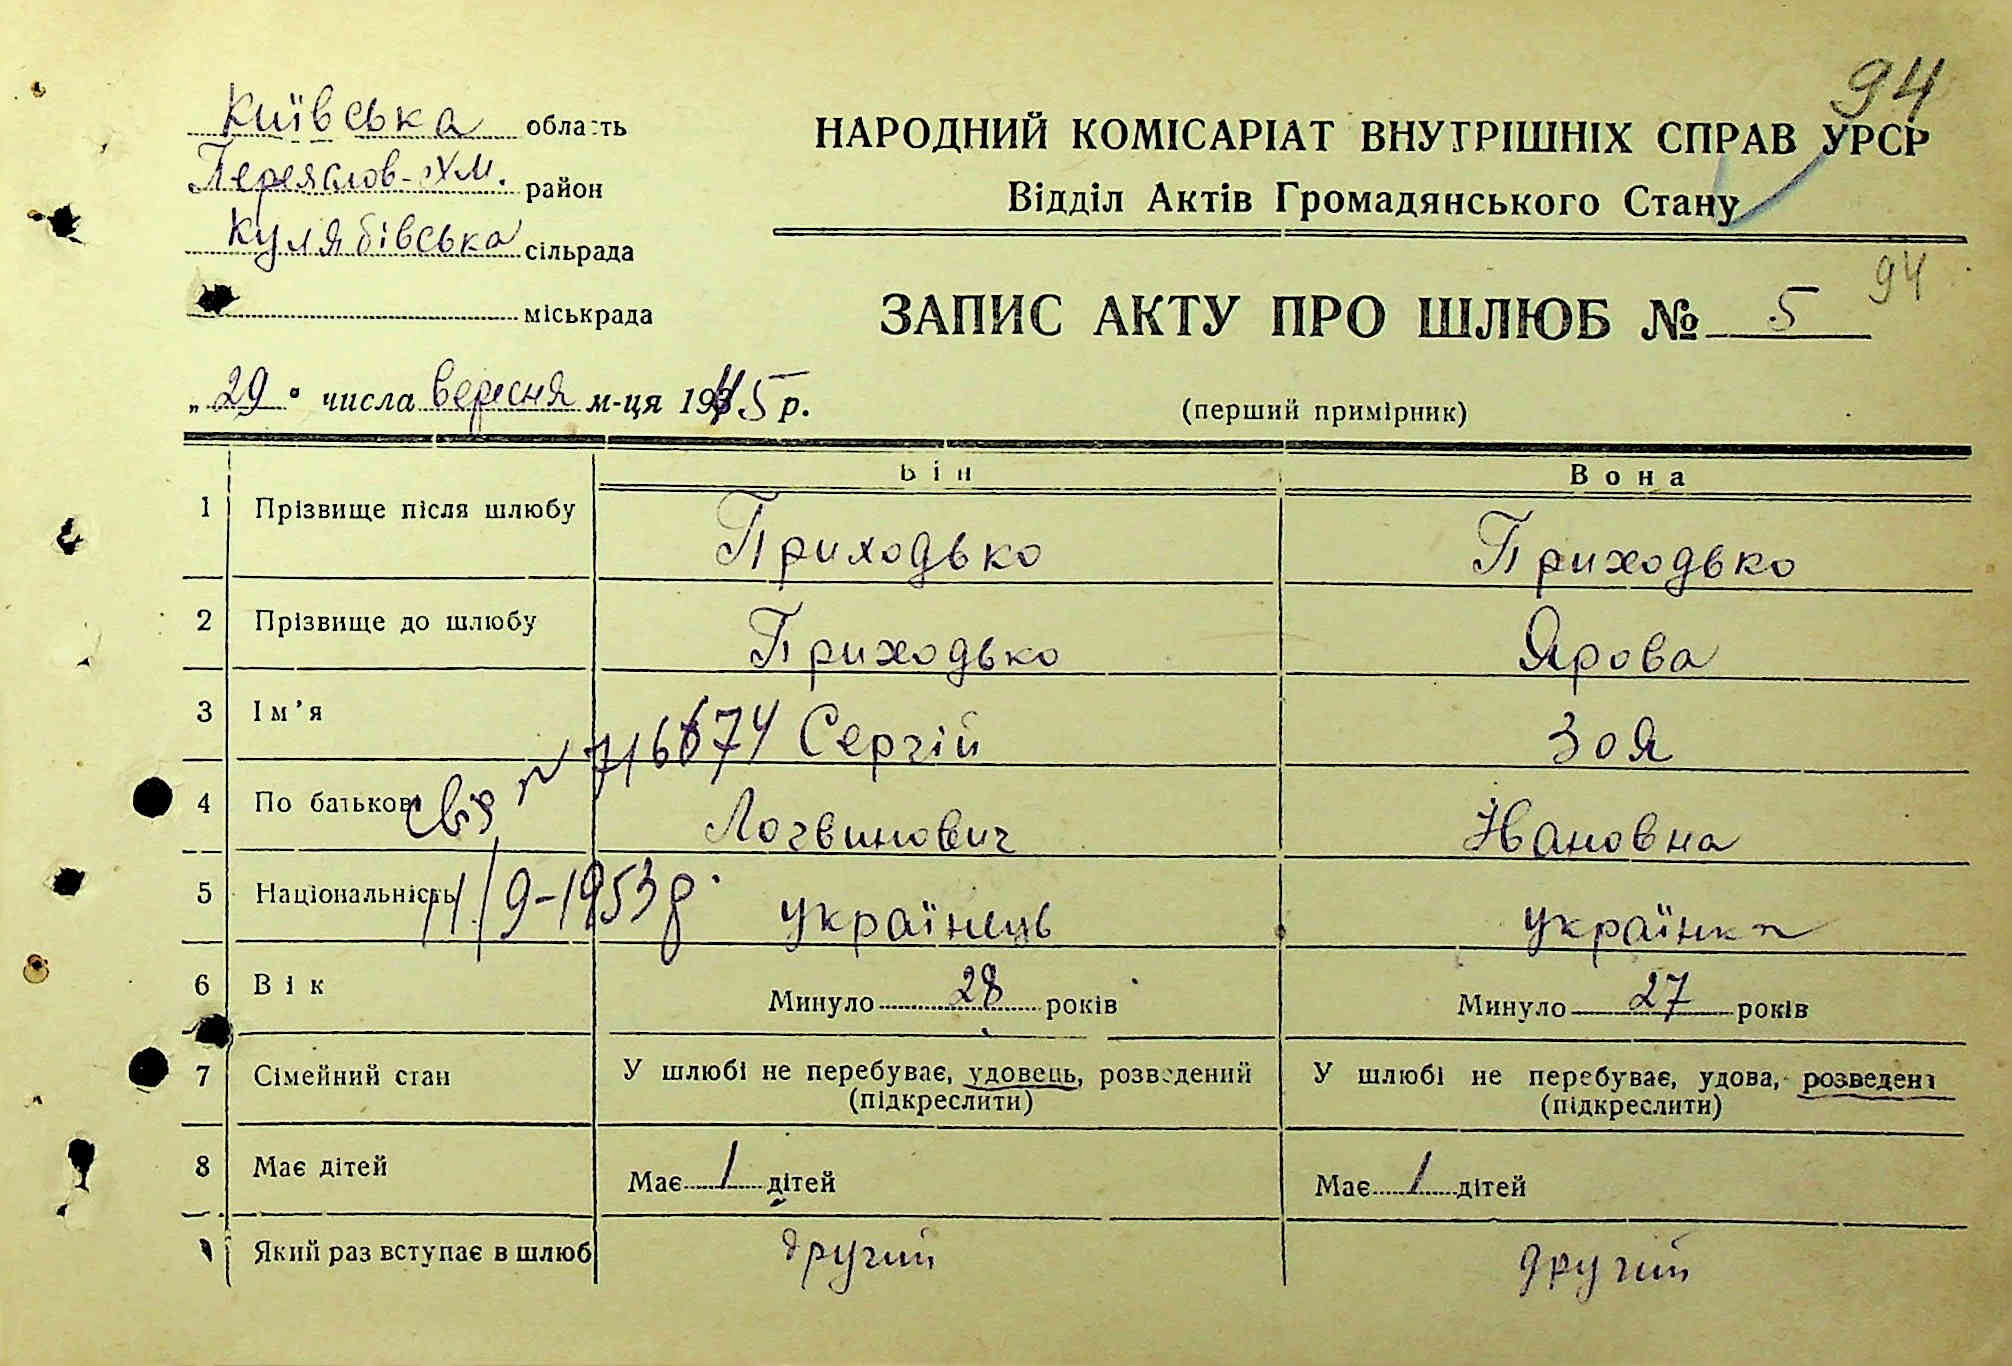 94
Київська область
Переяслов-Хм. район
Кулябівська сільрада
міськрада
НАРОДНИЙ КОМІСАРІАТ ВНУТРІШНІХ СПРАВ УРСР
Відділ Актів Громадянського Стану
94
ЗАПИС АКТУ ПРО ШЛЮБ № 5
„29" числа вересня м-ця 1945 р.
(перший примірник)
Він Вона
1 Прізвище після шлюбу Приходько Приходько
2 Прізвище до шлюбу Приходько Ярова
3 Ім'я Сергій Зоя
4 По батькові Логвинович Івановна
716674
11/9-1953р.
5 Національність українець українка
6 Вік Минуло 28 років Минуло 27 років
7 Сімейний стан У шлюбі не перебуває, удовець, розведений У шлюбі не перебуває, удова, розведена
(підкреслити) (підкреслити)
8 Має дітей Має 1 дітей Має 1 дітей
Який раз вступає в шлюб другий другий